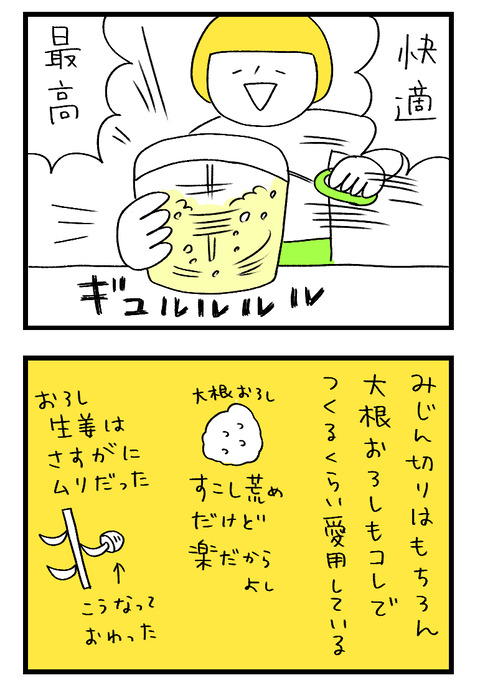 快適
最高
ギュルルルルル
みじん切りはもちろん
大根おろしもコレで
つくるくらい愛用している
大根おろし
すこし荒め
だけど
楽だから
よし
おろし
生姜は
さすがに
ムリだった
↑
こうなって
おわった